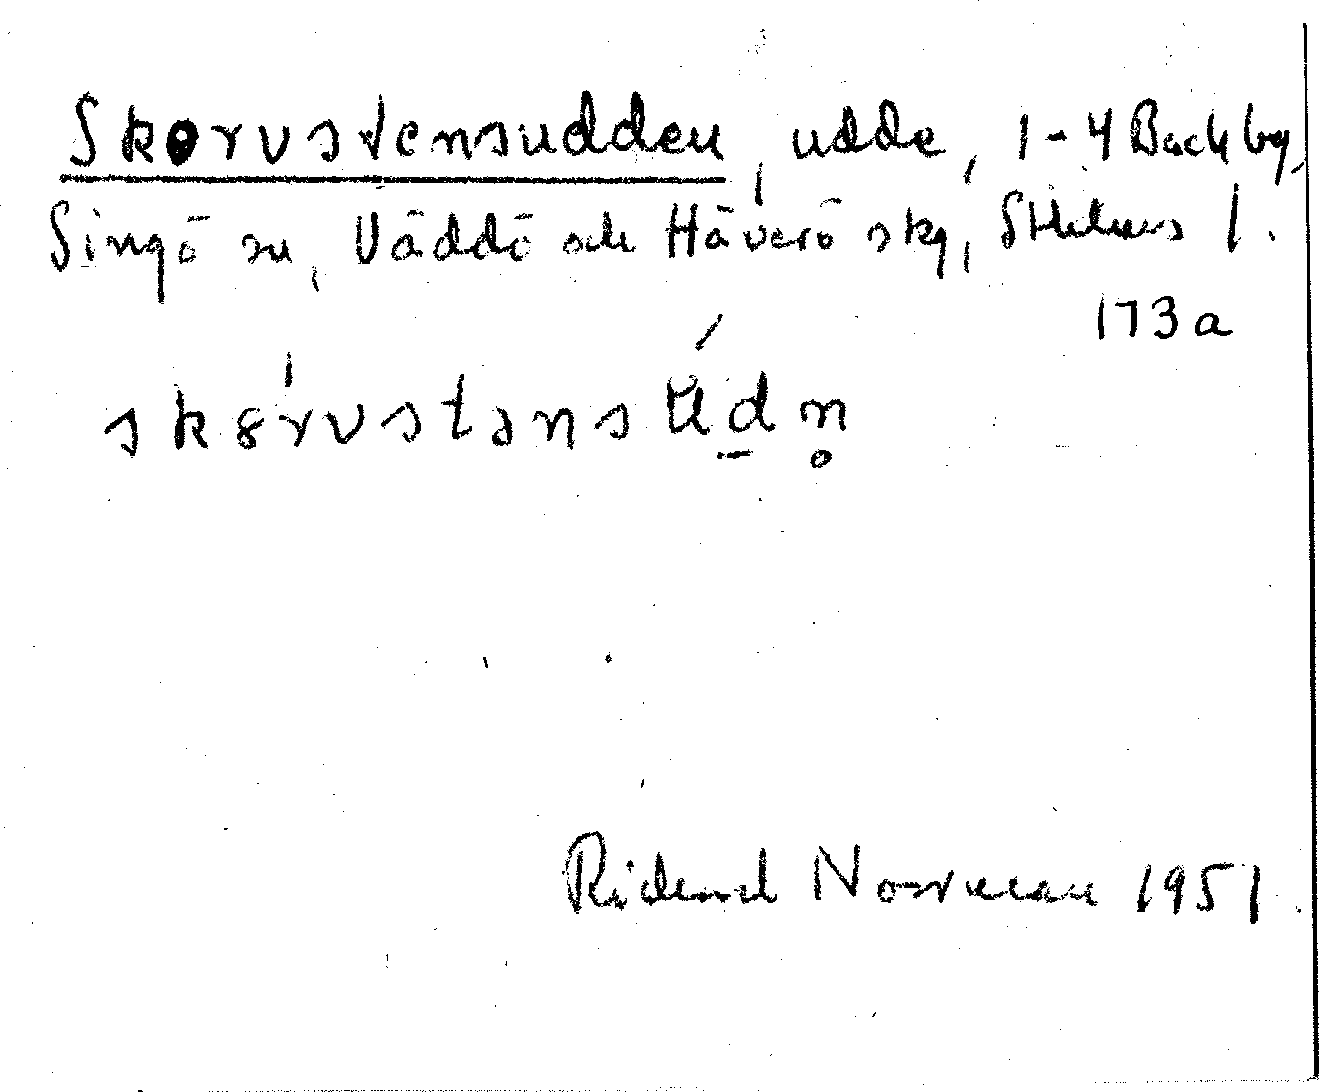 Skorvstensudden, udde, 1-4 Backby,
Singö sn, Väddö och Häverö skg, Sthlms l.
173a
skørvstənsudn̥
Norrman 1951